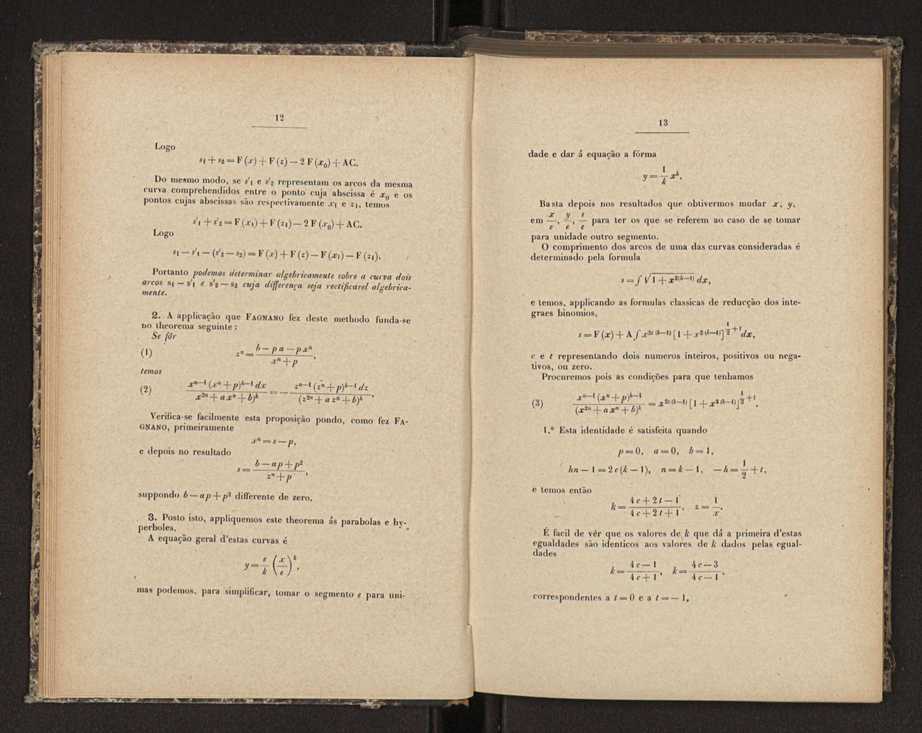 12
Logo
s₁ + s₂ = F (x) + F (z) — 2 F (x₀) + AC.
Do mesmo modo, se s'₁ e s'₂ representam os arcos da mesma
curva comprehendidos entre o ponto cuja abscissa é x₀ e os
pontos cujas abscissas são respectivamente x₁ e z₁, temos
s'₁ + s'₂ = F (x₁) + F (z₁) — 2 F (x₀) + AC.
Logo
s₁ — s'₁ — (s'₂ — s₂) = F (x) + F (z) — F (x₁) — F (z₁).
Portanto podemos determinar algebricamente sobre a curva dois
arcos s₁ — s'₁ e s'₂ — s₂ cuja differença seja rectificavel algebrica-
mente.
2. A applicação que FAGNANO fez deste methodo funda-se
no theorema seguinte:
Se fôr
(1) zⁿ = (b — p a — p xⁿ) / (xⁿ + p),
temos
(2) xⁿ⁻¹ (xⁿ + p)ʰ⁻¹ dx / (x²ⁿ + a xⁿ + b)ʰ = — zⁿ⁻¹ (zⁿ + p)ʰ⁻¹ dz / (z²ⁿ + a zⁿ + b)ʰ,
Verifica-se facilmente esta proposição pondo, como fez FA-
GNANO, primeiramente
xⁿ = s — p,
e depois no resultado
s = (b — ap + p²) / (zⁿ + p),
suppondo b — ap + p² differente de zero.
3. Posto isto, appliquemos este theorema ás parabolas e hy-
perboles.
A equação geral d'estas curvas é
y = (ε / k) (x / ε)ᵏ,
mas podemos, para simplificar, tomar o segmento ε para uni-
13
dade e dar á equação a fórma
y = (1 / k) xᵏ.
Basta depois nos resultados que obtivermos mudar x, y,
em x/ε, y/ε, s/ε para ter os que se referem ao caso de se tomar
para unidade outro segmento.
O comprimento dos arcos de uma das curvas consideradas é
determinado pela formula
s = ∫ √(1 + x²⁽ᵏ⁻¹⁾) dx,
e temos, applicando as formulas classicas de reducção dos inte-
graes binomios,
s = F (x) + A ∫ x^{2c (k—1)} [1 + x^{2 (k—1)}]^{1/2 + t} dx,
c e t representando dois numeros inteiros, positivos ou nega-
tivos, ou zero.
Procuremos pois as condições para que tenhamos
(3) xⁿ⁻¹ (xⁿ + p)ʰ⁻¹ / (x²ⁿ + a xⁿ + b)ʰ = x^{2c (k—1)} [1 + x^{2 (k—1)}]^{1/2 + t}.
1.º Esta identidade é satisfeita quando
p = 0, a = 0, b = 1,
hn — 1 = 2 c (k — 1), n = k — 1, — h = 1/2 + t,
e temos então
k = (4 c + 2 t — 1) / (4 c + 2 t + 1), z = 1 / x.
É facil de vêr que os valores de k que dá a primeira d'estas
egualdades são identicos aos valores de k dados pelas egual-
dades
k = (4 c — 1) / (4 c + 1), k = (4 c — 3) / (4 c — 1),
correspondentes a t = 0 e a t = — 1,